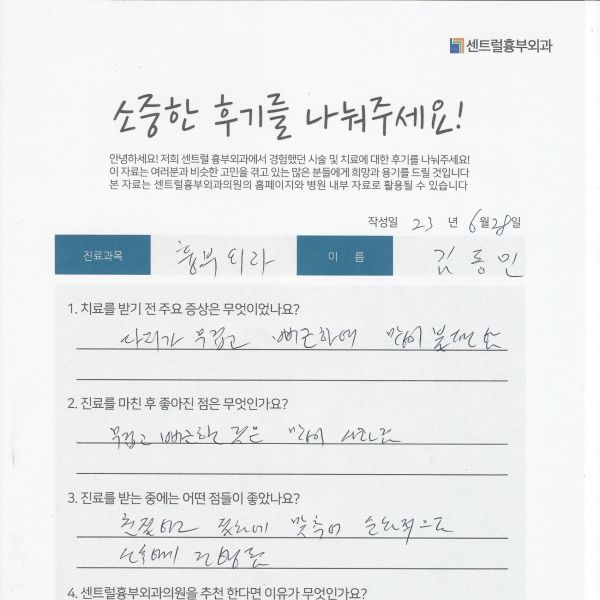 센트럴흉부외과
소중한 후기를 나눠주세요!
안녕하세요! 저희 센트럴 흉부외과에서 경험했던 시술 및 치료에 대한 후기를 나눠주세요!
이 자료는 여러분과 비슷한 고민을 겪고 있는 많은 분들에게 희망과 용기를 드릴 것입니다
본 자료는 센트럴흉부외과의원의 홈페이지와 병원 내부 자료로 활용될 수 있습니다
작성일 23 년 6월 28일
진료과목 흉부외과 이 름 김동민
1. 치료를 받기 전 주요 증상은 무엇이었나요?
다리가 무겁고 뻐근하여 많이 불편함
2. 진료를 마친 후 좋아진 점은 무엇인가요?
무겁고 뻐근한 것은 많이
3. 진료를 받는 중에는 어떤 점들이 좋았나요?
친절하고 맞추어 순차적으로
4. 센트럴흉부외과의원을 추천 한다면 이유가 무엇인가요?